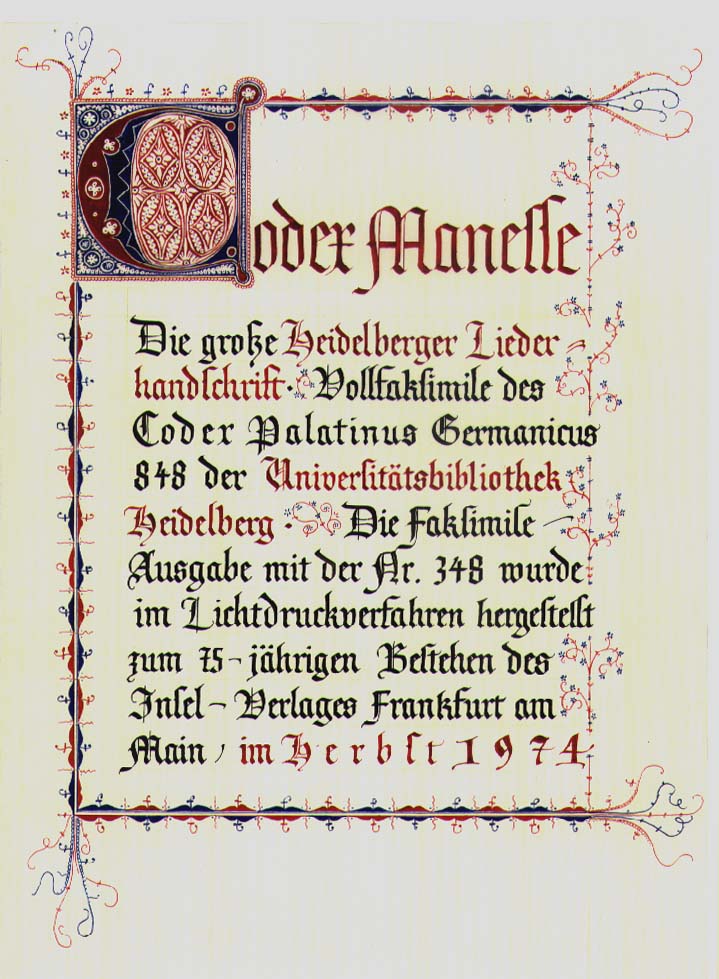 Codex Manesse
Die große Heidelberger Lieder-
handschrift. Vollfaksimile des
Codex Palatinus Germanicus
848 der Universitätsbibliothek
Heidelberg. Die Faksimile-
Ausgabe mit der Nr. 348 wurde
im Lichtdruckverfahren hergestellt
zum 75-jährigen Bestehen des
Insel-Verlages Frankfurt am
Main, im Herbst 1974